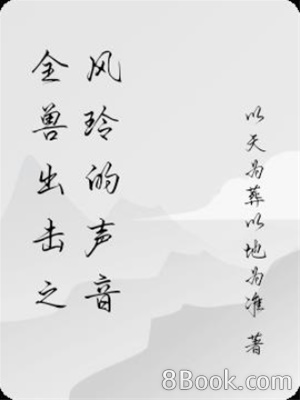 全兽出击之
风玲的声音
以天为葬以地为准 著
8Book.com